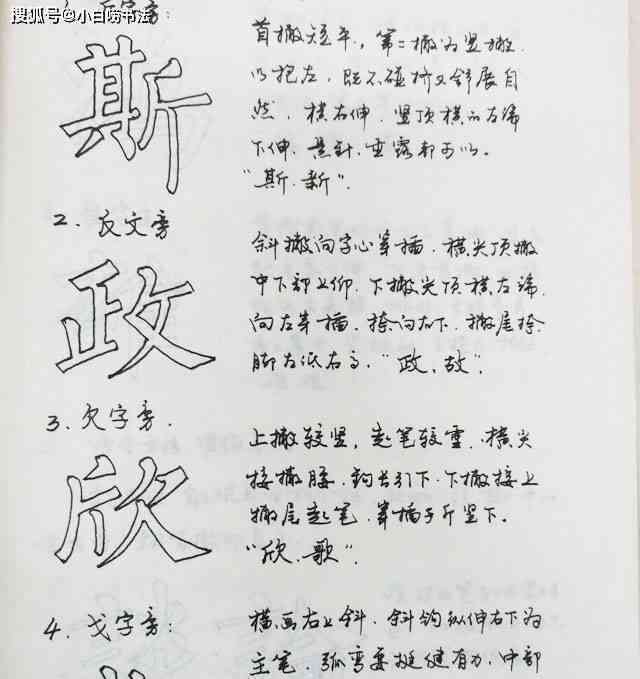 搜狐号@小白唠书法
字旁:
斯
首撇短平，第二撇为竖撇
以抱左，既不碰挤又舒展自
然，横右伸，竖顶横的左端
下伸，悬针、垂露都可以。
“斯、新”.
2. 反文旁
政
斜撇向字心穿插，横尖顶撇
中下部上仰，下撇尖顶横左端
向左穿插，捺向右下，撇尾捺
脚左低右高，“政、故”.
3. 欠字旁.
欣
上撇较竖，起笔较重，横尖
接撇腰，钩长引下，下撇接上
撇尾起笔，穿插于斤竖下。
“欣、歌”.
4. 戈字旁:
横画右上斜，斜钩纵伸右下为
主笔，弧弯要挺健有力，中部